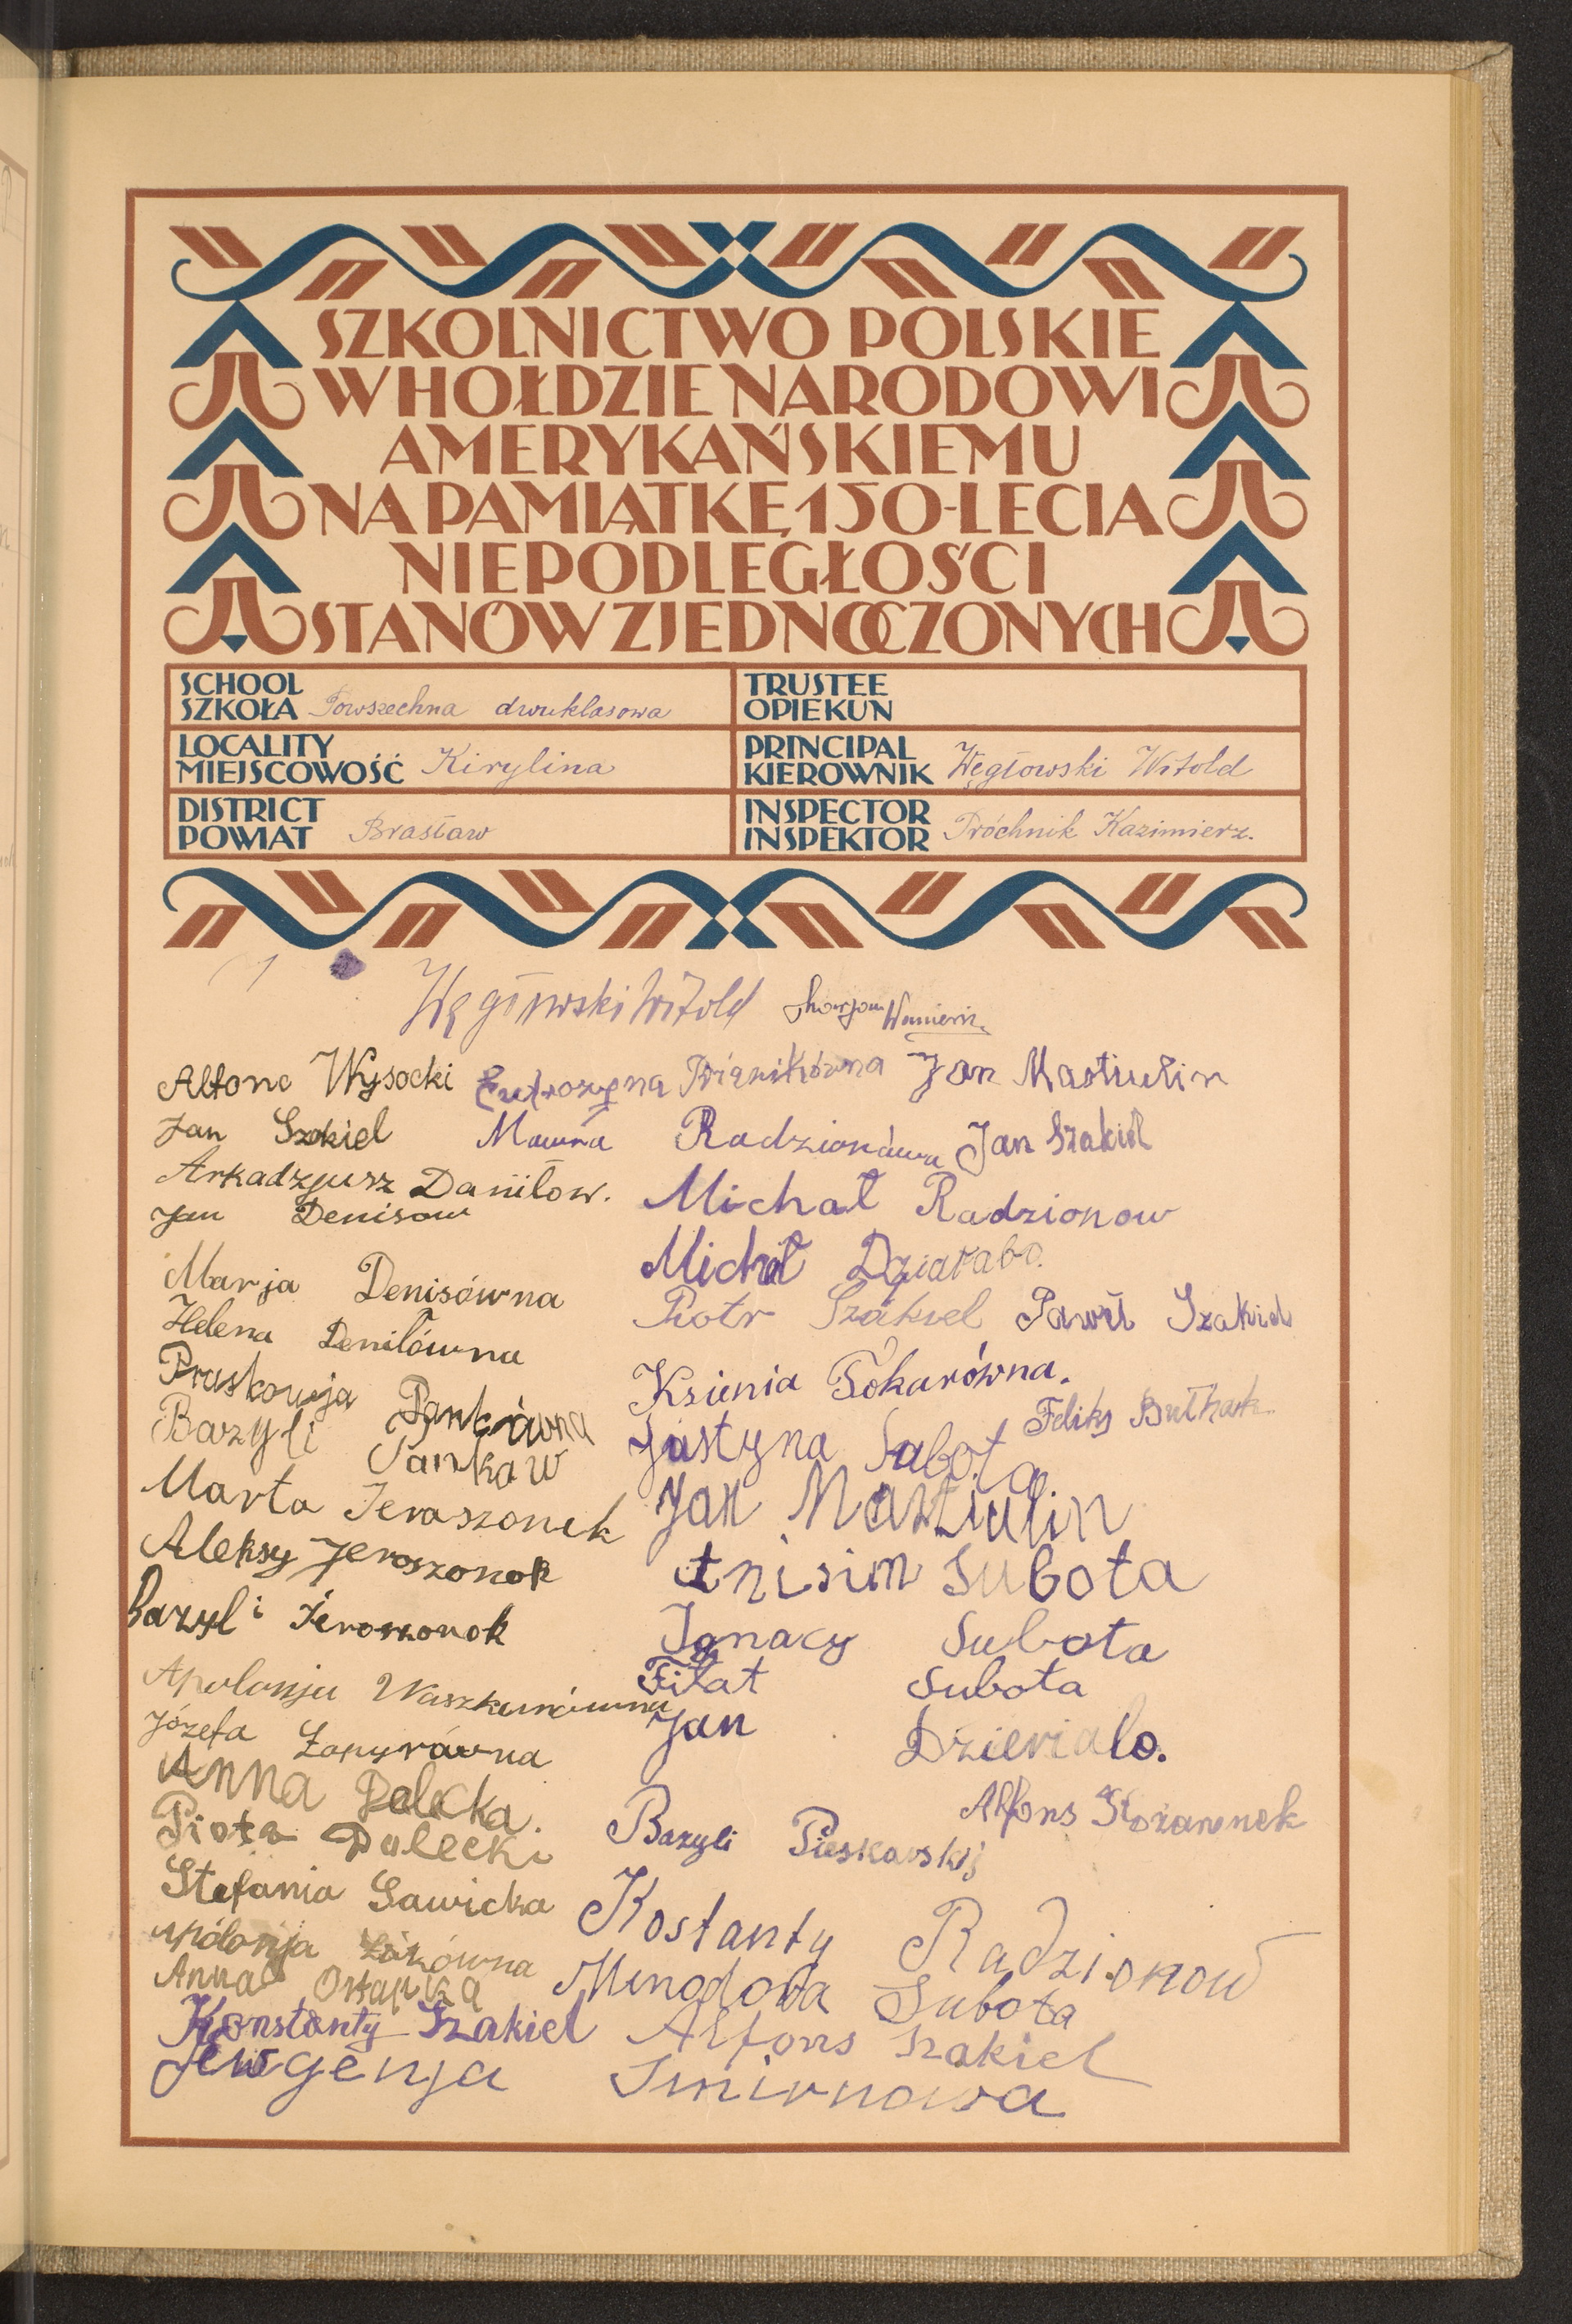 SZKOLNICTWO POLSKIE
W HOŁDZIE NARODOWI
AMERYKAŃSKIEMU
NA PAMIĄTKĘ 150-LECIA
NIEPODLEGŁOŚCI
STANÓW ZJEDNOCZONYCH
SCHOOL
SZKOŁA Powszechna dwuklasowa
TRUSTEE
OPIEKUN
LOCALITY
MIEJSCOWOŚĆ Kirylina
PRINCIPAL
KIEROWNIK Węgłowski Witold
DISTRICT
POWIAT Brasław
INSPECTOR
INSPEKTOR Próchnik Kazimierz.
Węgłowski Witold
Alfons Wysocki
Jan Mastiulin
Jan Szakiel
Radzionówa Jan Szakiel
Arkadzjusz Daniłow.
Michał Radzionow
Jan Denisow
Michał
Marja Denisówna
Piotr Szakiel Paweł Szakiel
Helena Deniłówna
Ksienia Tokarówna.
Praskowja Pankówna
Feliks Bułhak
Bazyli Pankow
Justyna Subota
Marta Jeraszonek
Jan Mastiulin
Aleksy Jeroszonok
Anisim Subota
Bazyli Jeroszonok
Ignacy Subota
Apolonja
Filat Subota
Józefa Łapyrówna
Jan Dzierialo.
Anna Dalecka.
Alfons
Piotr Dalecki
Bazyli Pieskowskij
Stefania Sawicka
Kostanty Radzionow
Apólonja
Anna
Minodora Subota
Konstanty Szakiel
Alfons Szakiel
Jewgenja Smirnowa